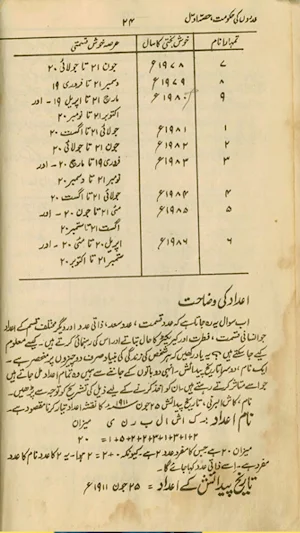 عددوں کی حکومت، حصہ اول ۲۴
تمہارا نام خوش بختی کا سال عرصہ خوش قسمتی
۷ ۱۹۷۸ء جون ۲۱ تا جولائی ۲۰
۸ ۱۹۷۹ء دسمبر ۲۱ تا فروری ۱۹
۹ ۱۹۸۰ء مارچ ۲۱ تا اپریل ۱۹ - اور
اکتوبر ۲۱ تا نومبر ۲۰
۱ ۱۹۸۱ء جولائی ۲۱ تا اگست ۲۰
۲ ۱۹۸۲ء جون ۲۱ تا جولائی ۲۰
۳ ۱۹۸۳ء فروری ۱۹ تا مارچ ۲۰ - اور
نومبر ۲۱ تا دسمبر ۲۰
۴ ۱۹۸۴ء جولائی ۲۱ تا اگست ۲۰
۵ ۱۹۸۵ء مئی ۲۱ تا جون ۲۰ - اور
اگست ۲۱ تا ستمبر ۲۰
۶ ۱۹۸۶ء اپریل ۲۰ تا مئی ۲۰ - اور
ستمبر ۲۱ تا اکتوبر ۲۰
اعداد کی وضاحت
اب سوال یہ رہ جاتا ہے کہ عدد قسمت، عدد سعد، ذاتی عدد اور دیگر مختلف قسم کے اعداد
جو انسانی قسمت، فطرت اور کیریکٹر کا حال بتاتے اور اس کی رہنمائی کرتے ہیں۔ کیسے معلوم
کیے جا سکتے ہیں؟ یہ یاد رکھیں کہ ہر شخص کی زندگی کی بنیاد صرف دو چیزوں پر منحصر ہے۔
ایک نام، دوسرا تاریخ پیدائش، انہی دو باتوں کے جاننے سے ہمیں وہ تمام اعداد مل جاتے ہیں
جو اسے متاثر کرتے رہتے ہیں، ان کو اخذ کرنے کے لیے ذیل کی تشریح کو توجہ سے پڑھیں۔
نام، کاش البرنی، تاریخ پیدائش ۲۵ جون ۱۹۱۱ء کا نقشہ اعداد تیار کرنا مقصود ہے۔
نام اعداد : ک ا ش ا ل ب ر ن ی میزان
۲+۱+۳+۱+۳+۲+۲+۵+۱ = ۲۰
میزان ۲۰ ہے جس کا مفرد عدد ۲ ہے۔ کیونکہ ۰ + ۲ = ۲ ہوا۔ یہ ۲ کا عدد نام کا عدد
مفرد ہے۔ اسے ذاتی عدد کہا جائے گا۔
تاریخ پیدائش کے اعداد = ۲۵ جون ۱۹۱۱ء